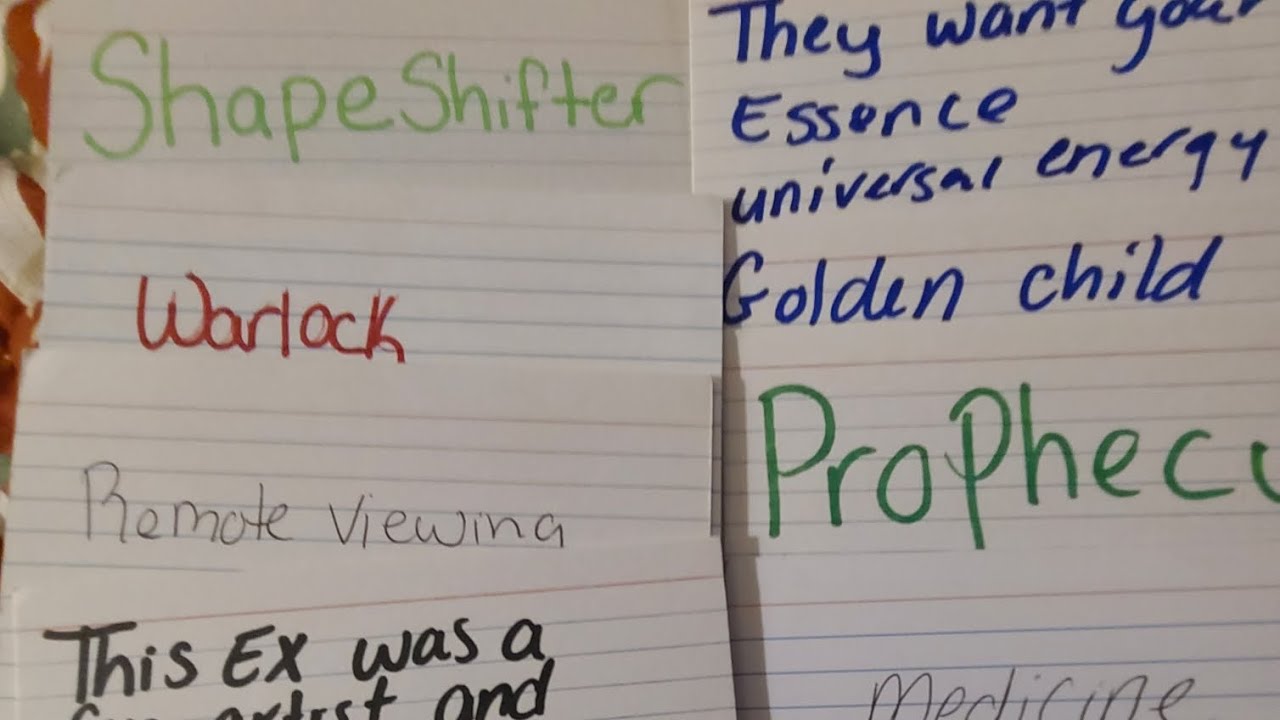 ShapeShifter
Warlock
Remote Viewing
This Ex was a
artist and
They want your
Essence
universal energy
Golden child
Prophecy
Medicine